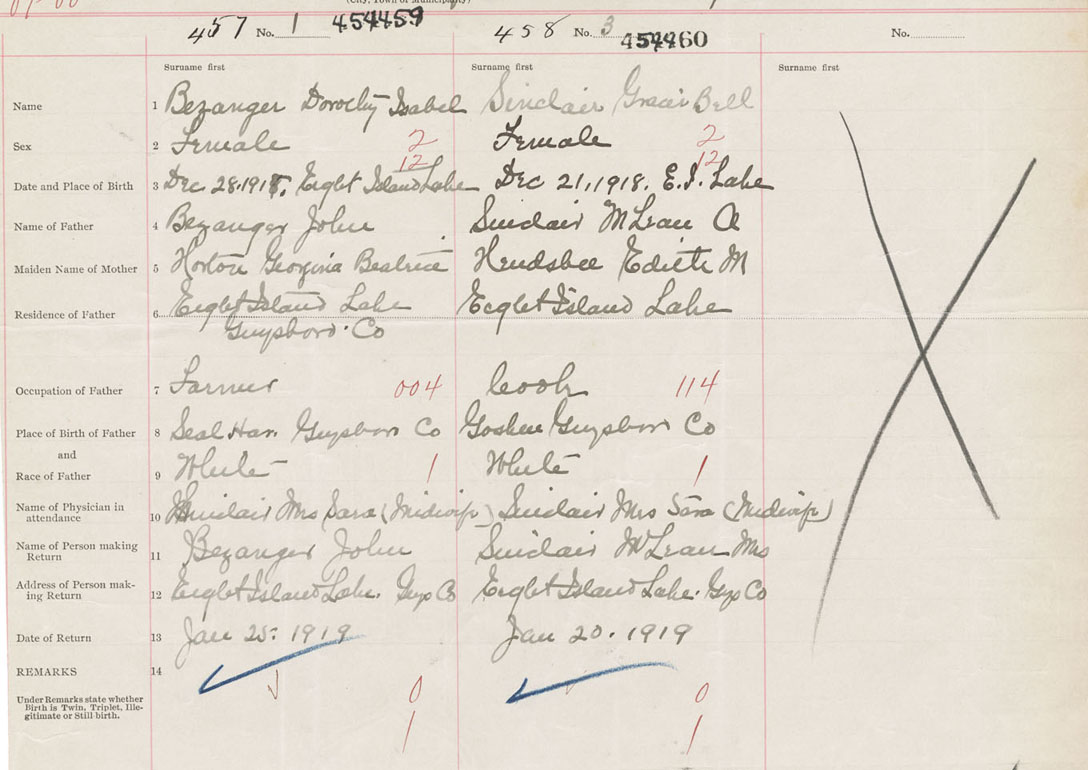 (City, Town or Municipality)
457 No. 1 454459 458 No. 3 454460 No.
Surname first Surname first Surname first
Name 1 Bezanger Dorothy Isabel Sinclair Gracie Bell
Sex 2 Female 2 Female 2
12 12
Date and Place of Birth 3 Dec 28.1918. Eight Island Lake Dec 21, 1918. E.I. Lake
Name of Father 4 Bezanger John Sinclair McLean A
Maiden Name of Mother 5 Horton Georgina Beatrice Hendsbee Edith M
Residence of Father 6 Eight Island Lake Eight Island Lake
Guysboro Co
Occupation of Father 7 Farmer 004 Cook 114
Place of Birth of Father 8 Seal Har. Guysboro Co Goshen Guysboro Co
and
Race of Father 9 White 1 White 1
Name of Physician in
attendance 10 Sinclair Mrs Sara (Midwife) Sinclair Mrs Sara (Midwife)
Name of Person making
Return 11 Bezanger John Sinclair McLean Mrs
Address of Person mak-
ing Return 12 Eight Island Lake. Guys Co Eight Island Lake. Guys Co
Date of Return 13 Jan 25. 1919 Jan 20. 1919
REMARKS 14
Under Remarks state whether
Birth is Twin, Triplet, Ille-
gitimate or Still birth.
0 0
1 1